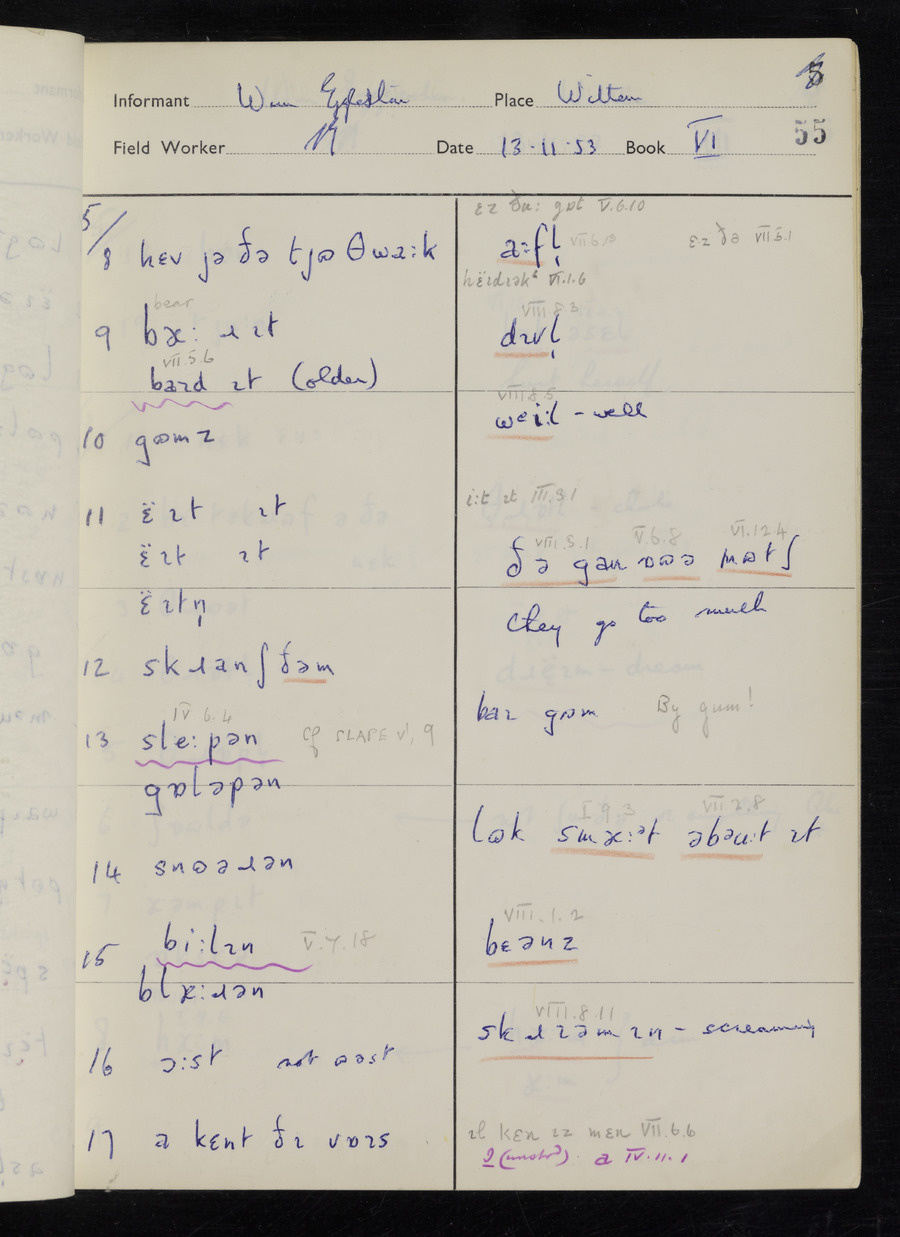 5
Informant Wm Place Wilton
55
Field Worker Date 13.11.53 Book VI
5/
8 hɛv jə ðə tjɷ θwaːk
bear
9 bɛː ɹ ɪt
VII.5.6
baɪd ɪt (older)
10 gɷmz
11 ɛ̈ ɪt ɪt
ɛ̈ɪt ɪt
ɛ̈ɪtn̩
12 skɹanʃ ðəm
IV 6.4
13 sleːpən cf SLAPE VI, 9
gɒləpən
14 snɷəɹən
15 biːlɪn V.4.18
blɛːɹən
16 ɔːst not ɷəst
17 a kɛnt ðɪ vɒɪs
ɛz ðuː gɒt V.6.10
aːfl̩ VII.6.13 ɛz ðə VII.5.1
VI.1.6
VIII.8.3
dɪvl̩
VIII.8.5
weiːl - well
iːt ɪt III.3.1
VIII.5.1 V.6.8 VI.12.4
ðə gaɪ ɒɷə mɷtʃ
they go too much
baɪ gɷm By gum!
I 9.3 VII.2.8
lɷk smɛːət əbəuːt ɪt
VIII.1.2
bɛənz
VIII.8.11
skɹɪəmɪn - screaming
ɪl kɛn ɪz mɛn VII.6.6
a IV.11.1